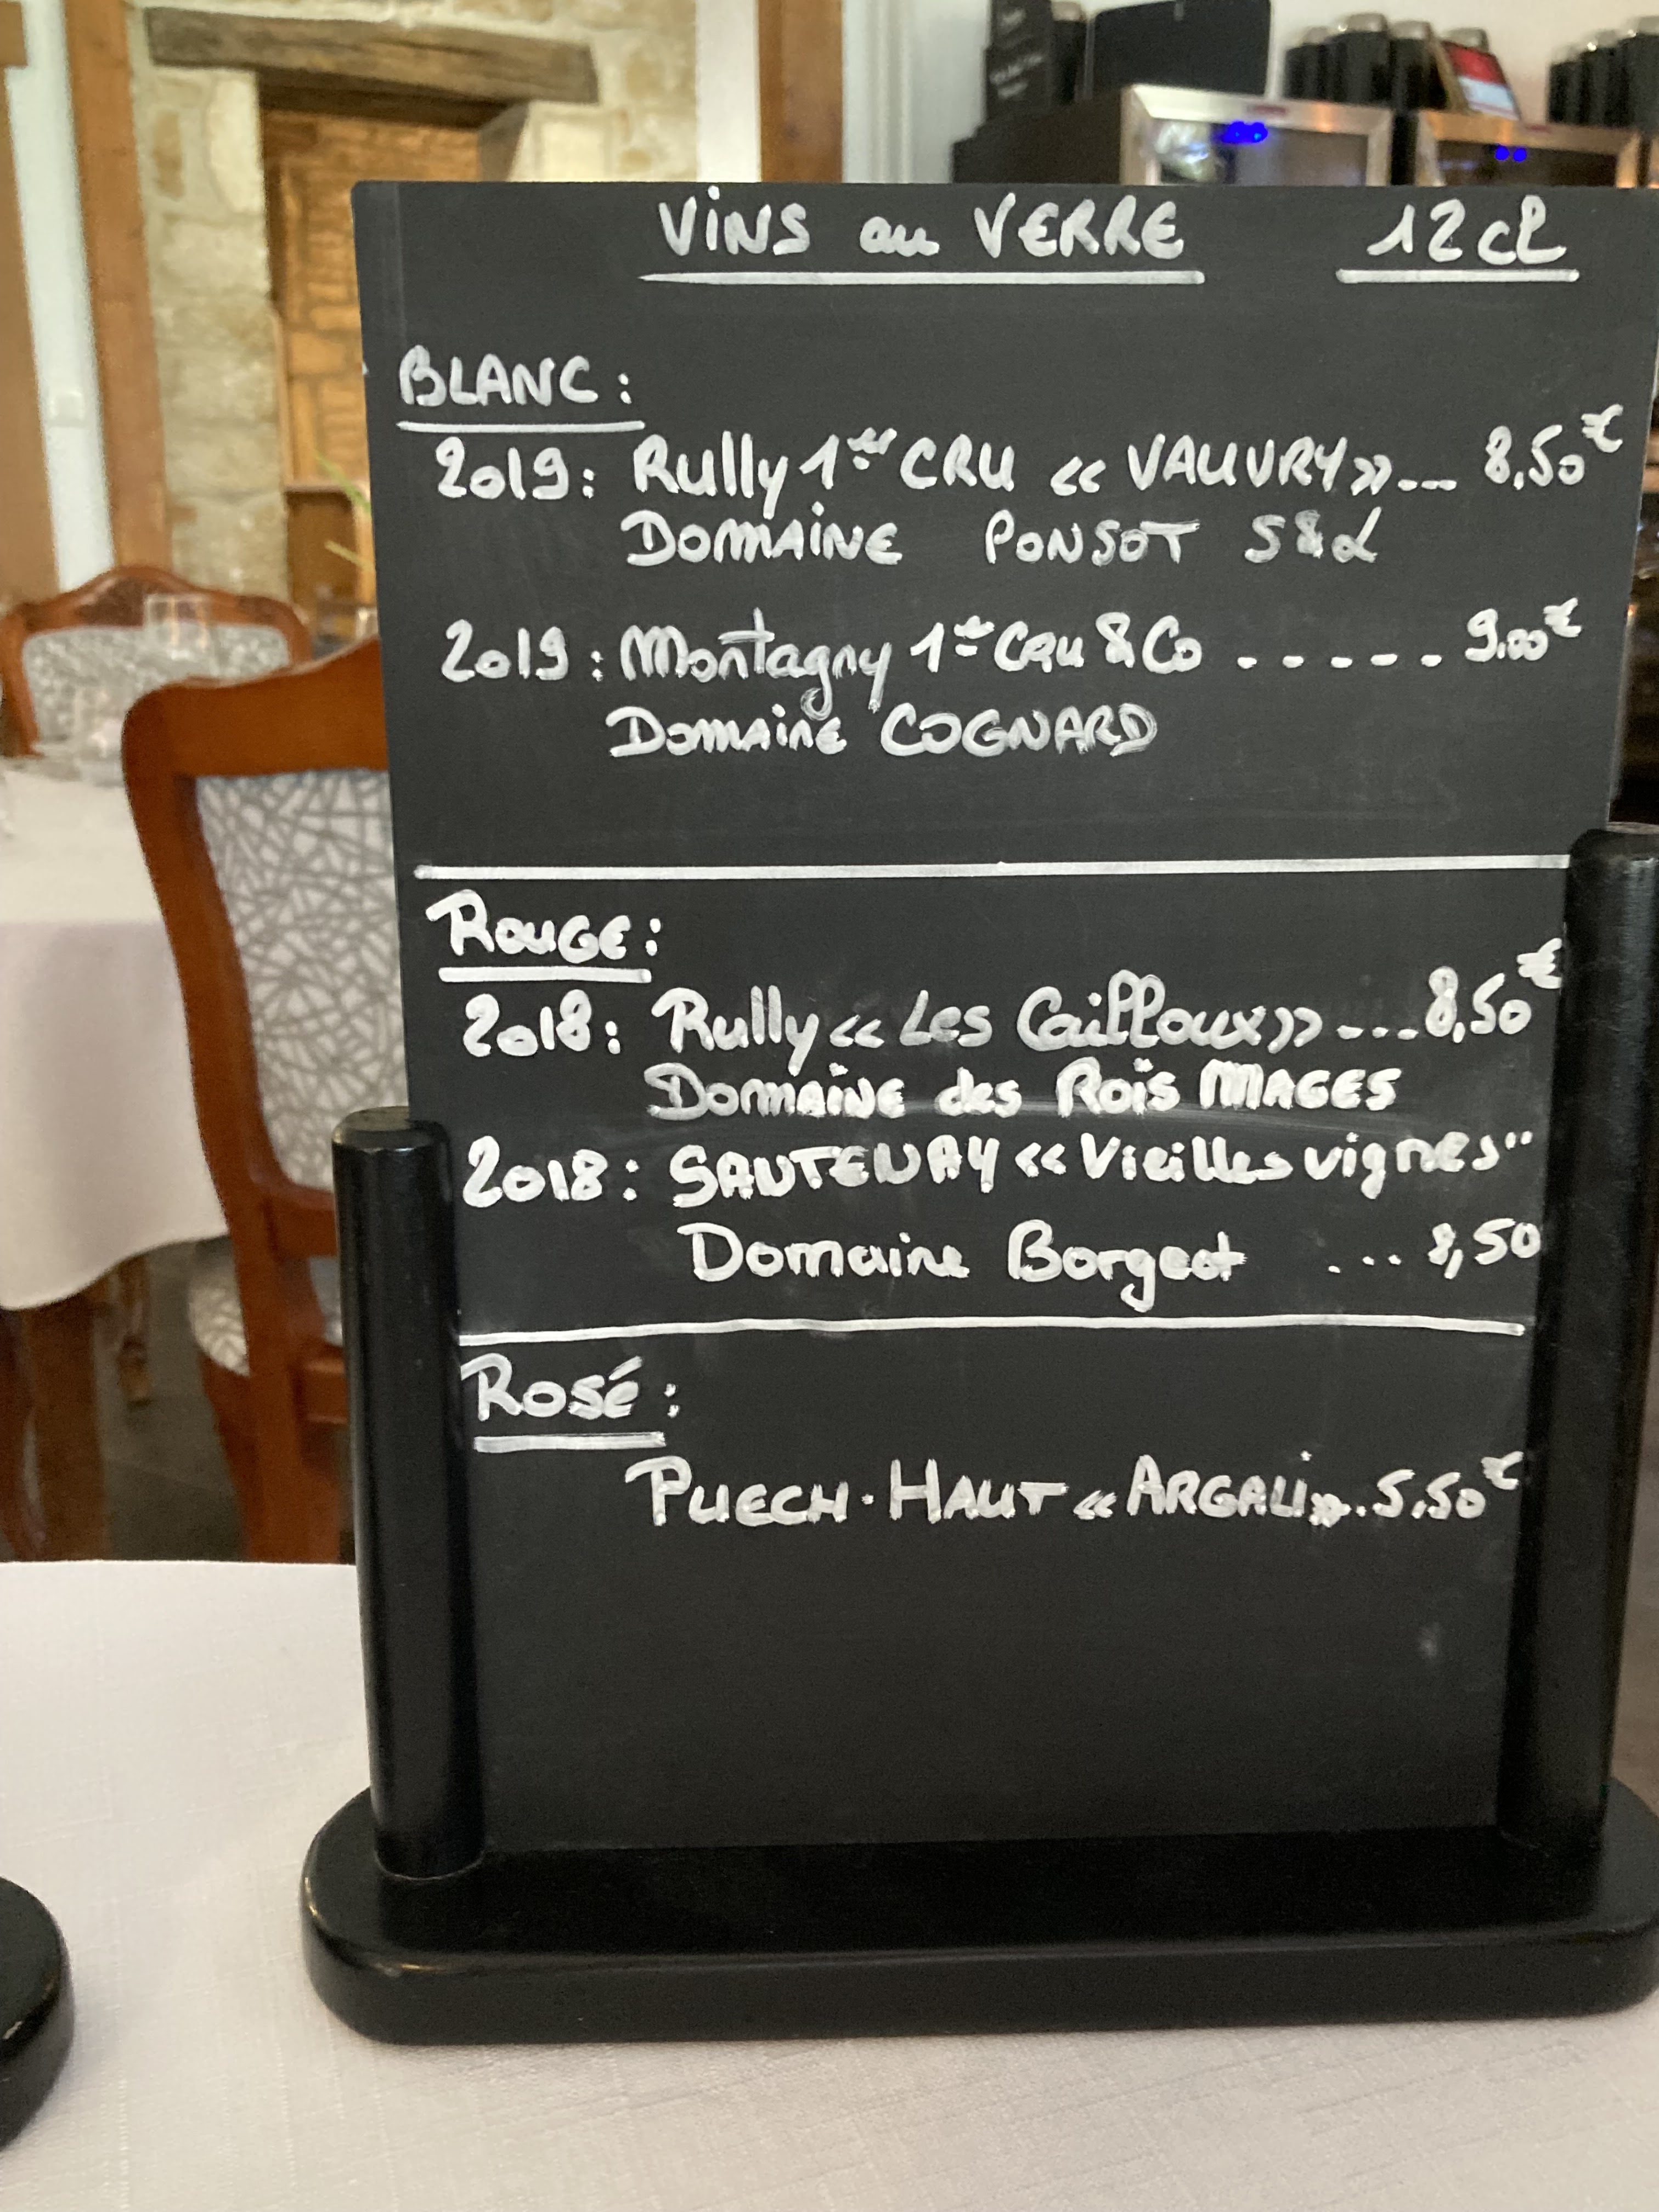 ViNS au VERRE 12 cl
BLANC :
2019 : Rully 1er CRU « VAUVRY » ... 8,50€
DOMAiNE PONSOT S&L
2019 : Montagny 1er Cru & Co ...... 9.00€
DOMAiNE COGNARD
ROUGE :
2018 : Rully « Les Cailloux » .... 8,50€
DOMAiNE des Rois MAGES
2018 : SANTENAY « Vieilles vignes"
Domaine Borgeot ... 8,50
ROSé :
PUECH-HAUT « ARGALi » . 5.50€